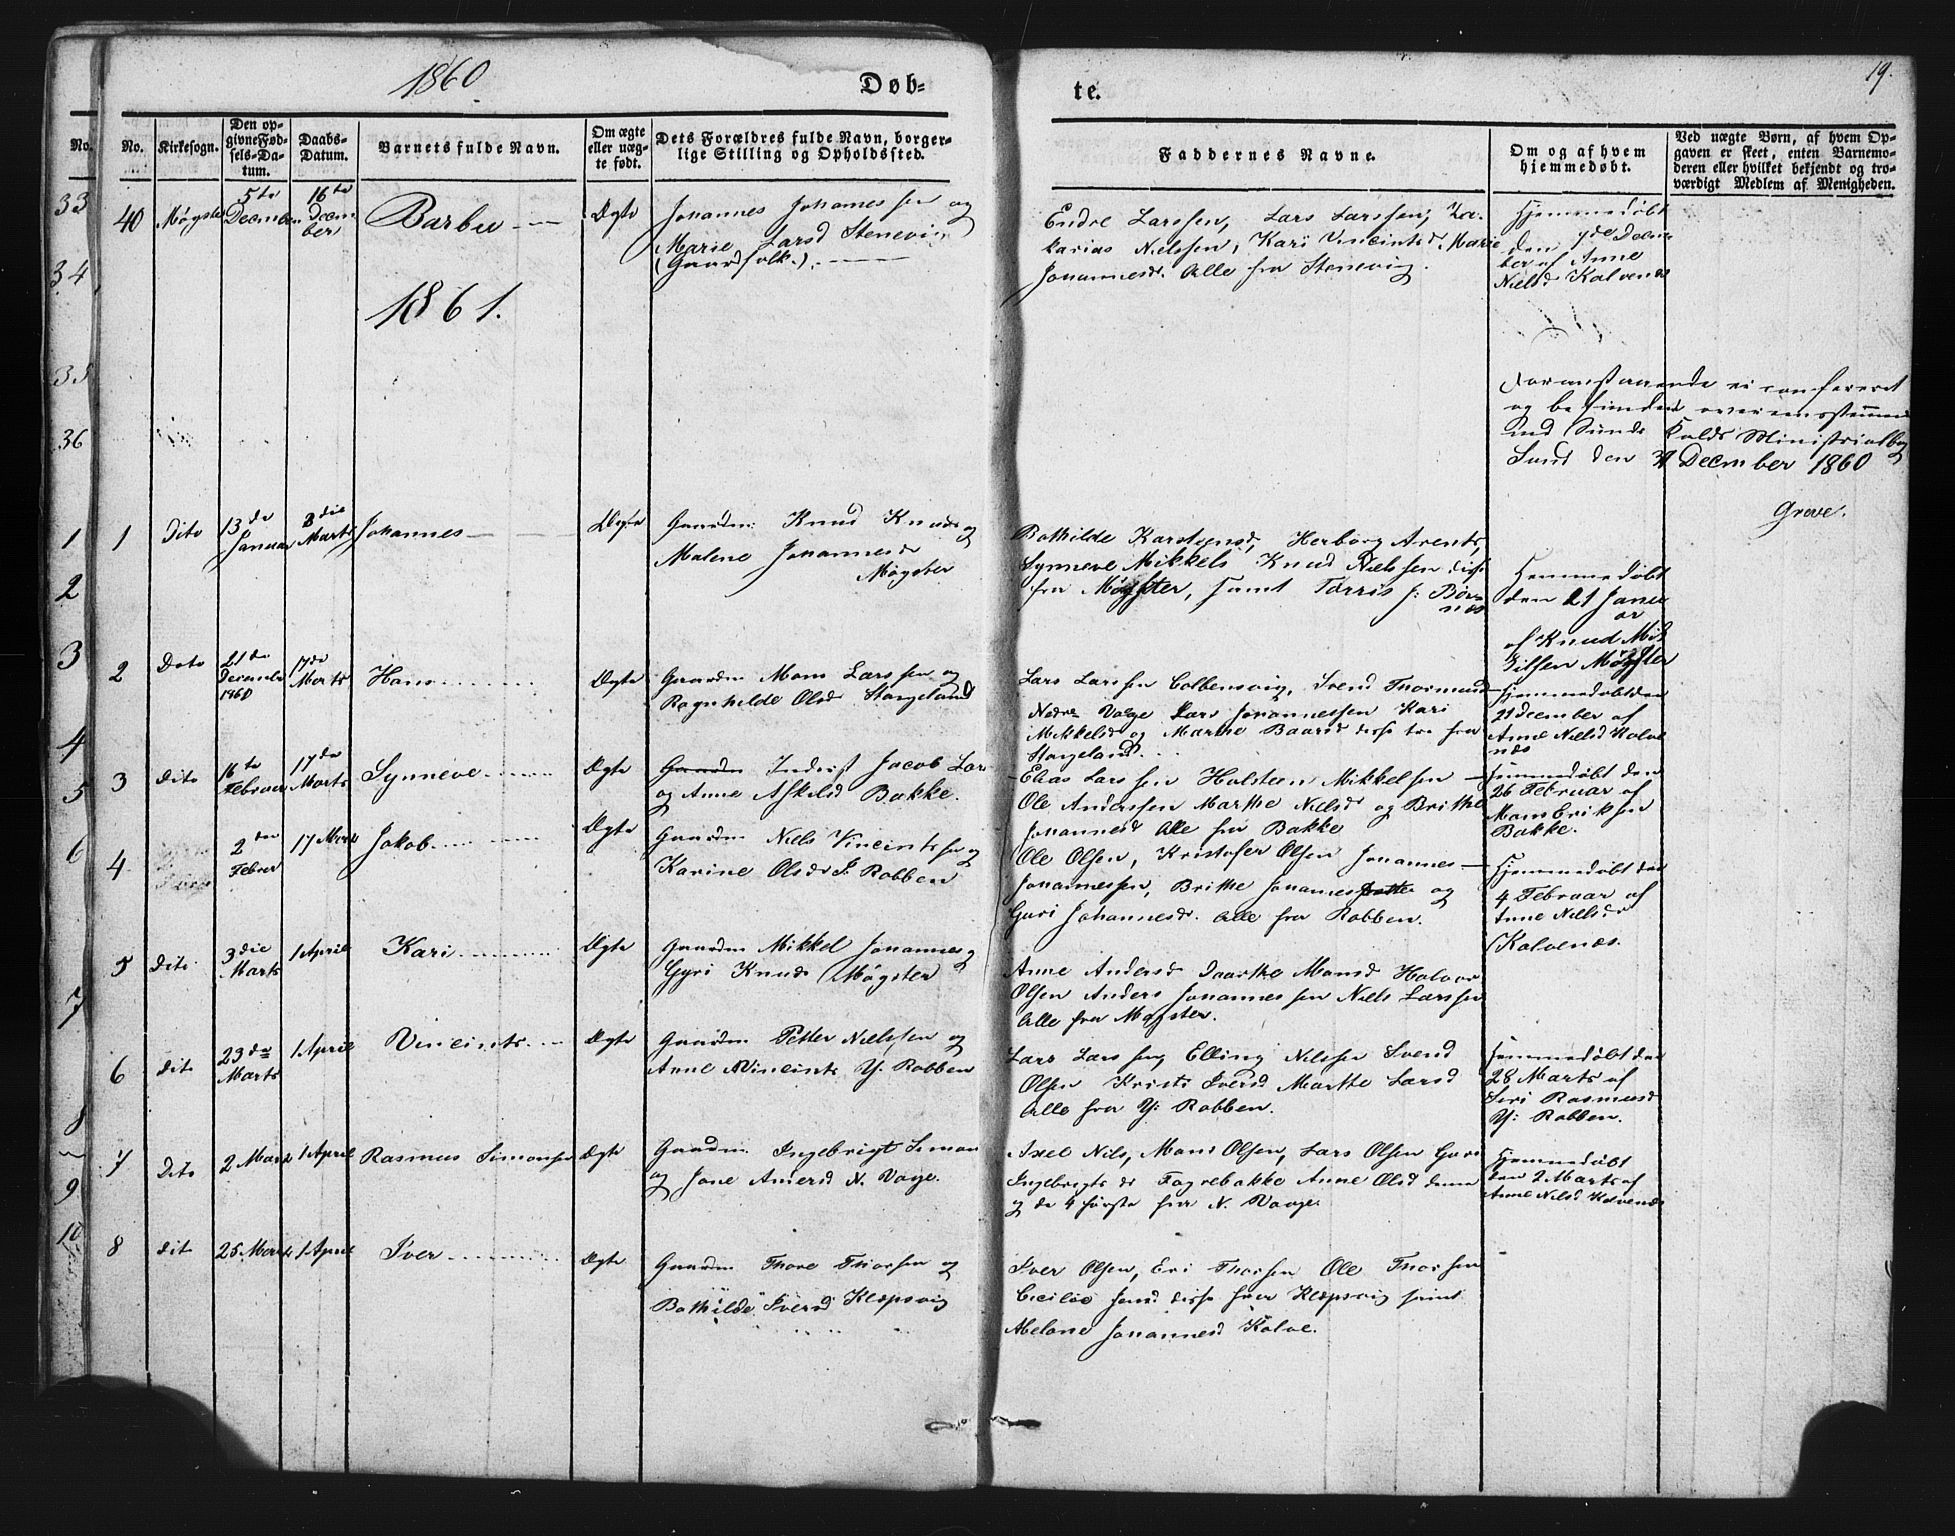 1860
Døb-
te.
19.
No.
No.
Kirkesogn.
Den op-
givne Fød-
sels-Da-
tum.
Daabs-
Datum.
Barnets fulde Navn.
Om ægte
eller uæg-
te født.
Dets Forældres fulde Navn, borger-
lige Stilling og Opholdssted.
Faddernes Navne.
Om og af hvem
hjemmedøbt.
Ved uægte Børn, af hvem Op-
gaven er skeet, enten Barnemo-
deren eller hvilket bekjendt og tro-
værdigt Medlem af Menigheden.
33
34
35
36
1
2
3
4
5
6
7
8
9
10
40
Møgster
5te
December
16te
Decem
ber
Barbu
Ægte
Johannes Johannessen og
Marie Larsd Stenevig
(Gaardfolk.)
Endre Larssen, Lars Larssen, Za-
karias Nielssen, Kari Vincintsd, Marie
Johannesd. Alle fra Stenevig.
Hjemmedøbt
den 7de Decem
ber af Anne
Nielsd Kalvenæs
1861.
Foranstaaende er confereret
og befunden overeensstemmende
med Sunds Kalds Ministrialbog
Sund den 31 December 1860
Greve.
1
Dito
13de
Januar
3die
Marts
Johannes
Ægte
Gaardm: Knud Knuds og
Malene Johannesd
Møgster
Bothilde Karstensd, Herborg Arents,
Synneve Mikkels Knud Nielssen disse
fra Møgster, samt Torris J: Bør-
næs
Hjemmedøbt
den 21 Janu
ar
af Knud Mik
kelsen Møgster
2
Dito
21de
December
1860
17de
Marts
Hans
Ægte
Gaardm Mons Larssen og
Ragnhilde Olsd Hargeland
Lars Larssen Colbensvig, Svend Thormund
Nedre Vaage Lars Johannessen Kari
Mikkelsd og Marthe Baardsd disse tre fra
Hargeland.
Hjemmedøbt den
21 December af
Anne Nielsd Kalve
næs
3
Dito
16te
Februar
17de
Marts
Synneve
Ægte
Gaardm Inderst Jacob Lars
og Anne Askelsd Bakke.
Elias Larssen Holsteen Mikkelsen
Ole Anderssen Marthe Nielsd og Brithe
Johannesd Alle fra Bakke
Hjemmedøbt den
26 Februar af
Mons Eriksen
Bakke.
4
2den
Febrer
17 Marts
Jakob
Ægte
Gaardm Niels Vincintssen og
Karine Olsdr I. Robben
Ole Olsen, Kristofer Olsen Johannes
Johannessen, Brithe Johannesdatter og
Guri Johannesdr. Alle fra Robben.
Hjemmedøbt den
4 Februar af
Anne Nielsdr
Kalvenæs.
5
Dito
3die
Marts
1 April
Kari
Ægte
Gaardm Mikkel Johannes og
Gyri Knuds Møgster
Anne Andersd Daarthe Monsd Halvor
Olsen Anders Johannessen Niels Larssen
Alle fra Møgster.
6
Dit
23de
Marts
1 April
Vincints
Ægte
Gaardm Petter Nielssen og
Anne Vincints Y: Robben
Lars Larsseng Elling Nilssen Svend
Olsen Kristi Iversd Marthe Larsd
Alle fra Y: Robben.
Hjemmedøbt den
28 Marts af
Siri Rasmusd
Y: Robben.
7
Dito
2 Marts
1 April
Rasmus Simonsen
Ægte
Gaardm Ingebrigt Simon
og Jone Amersd N. Vage.
Axel Nils, Mons Olsen, Lars Olsen Guri
Ingebrigtsdr Fagrebakke Anne Olsd denne
og de 4 første fra N. Vaage.
Hjemmedøbt
den 2 Marts af
Anne Nilsd Kalvenæs
8
Dit
25 Marts
1 April
Iver
Ægte
Gaardm Thore Thorsen og
Bothilde Iversd Klepsvig
Iver Olsen, Eri Thorsen Ole Thorsen
Cecilie Jensd disse fra Klepsvig samt
Melane Johannesd Kalve.